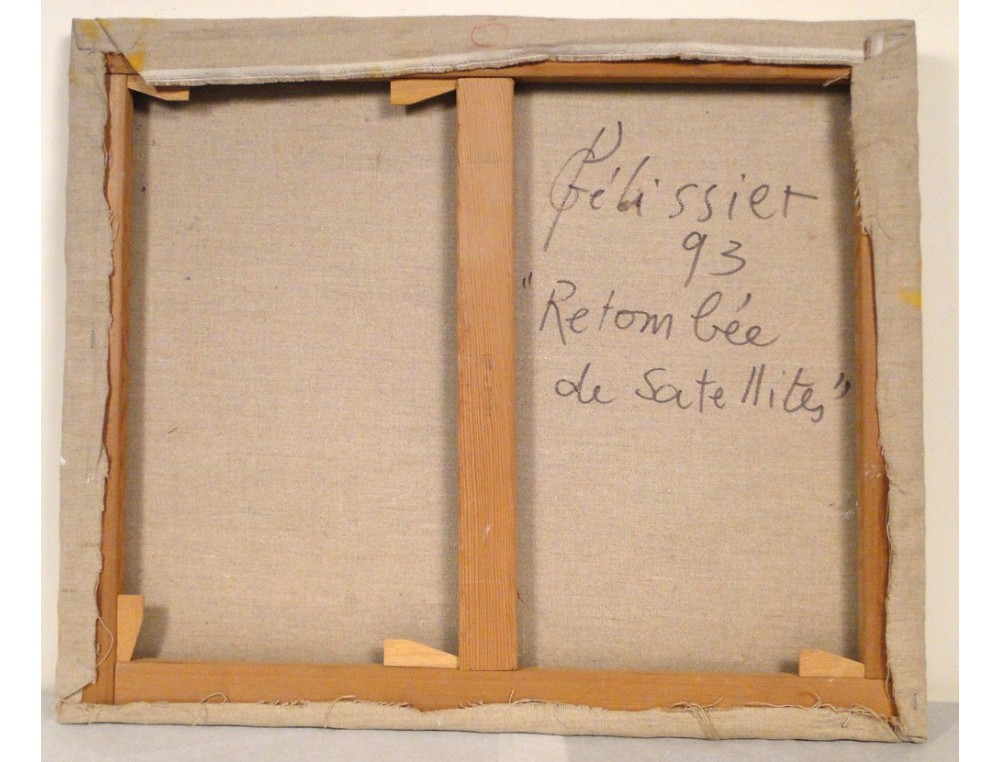 Pélissier
93
"Retombée
de Satellites"